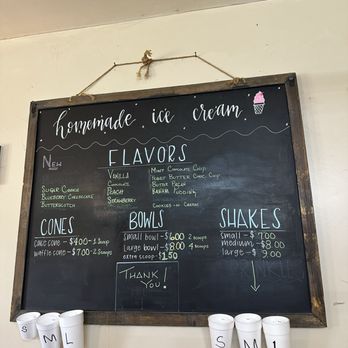 homemade ice cream
FLAVORS
New
Sugar Cookie
Blueberry Cheesecake
Butterscotch
Vanilla
Chocolate
Peach
Strawberry
Mint Chocolate Chip
Peanut Butter Choc. Chip
Butter Pecan
Banana Pudding
Cookies-n-Cream
CONES
cake cone - $4.00 - 1 scoop
waffle cone - $7.00 - 2 scoops
BOWLS
small bowl - $6.00 2 scoops
large bowl - $8.00 4 scoops
extra scoop - $1.50
THANK
YOU!
SHAKES
small - $7.00
medium - $8.00
large - $9.00
S M L
S M L